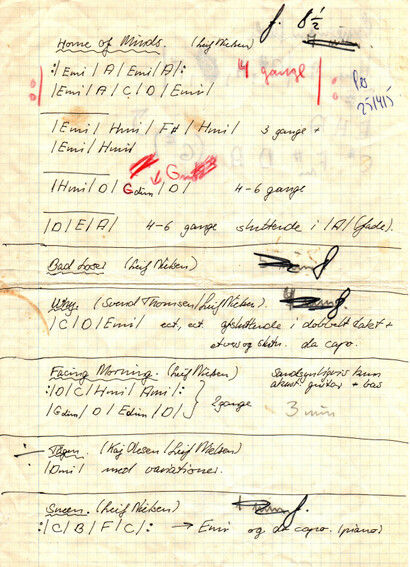 f. 8 1/2
Home of Minds. (Leif Nielsen)
:/ Emi / A / Emi / A /: 4 gange
/ Emi / A / C / D / Emi /
/ Emi / Hmi / F# / Hmi / 3 gange +
/ Emi / Hmi /
/ Hmi / D / Gdim / D / 4-6 gange
/ D / E / A / 4-6 gange sluttende i / A / (fade).
Bad Loser (Leif Nielsen)
(Svend Thomsen / Leif Nielsen).
/ C / D / Emi / ect, ect. afsluttende i dobbelt takt +
da capo.
Facing Morning. (Leif Nielsen) Sandsynligvis kun
akust. guitar + bas
:/ D / C / Hmi / Ami /:
/ Gdim / D / Edim / D / 2 gange 3 min
Tågen. (Kaj Olesen / Leif Nielsen)
/ Dmi / med variationer.
Sneen. (Leif Nielsen)
:/ C / B / F / C /: → Emi og da capo. (piano)